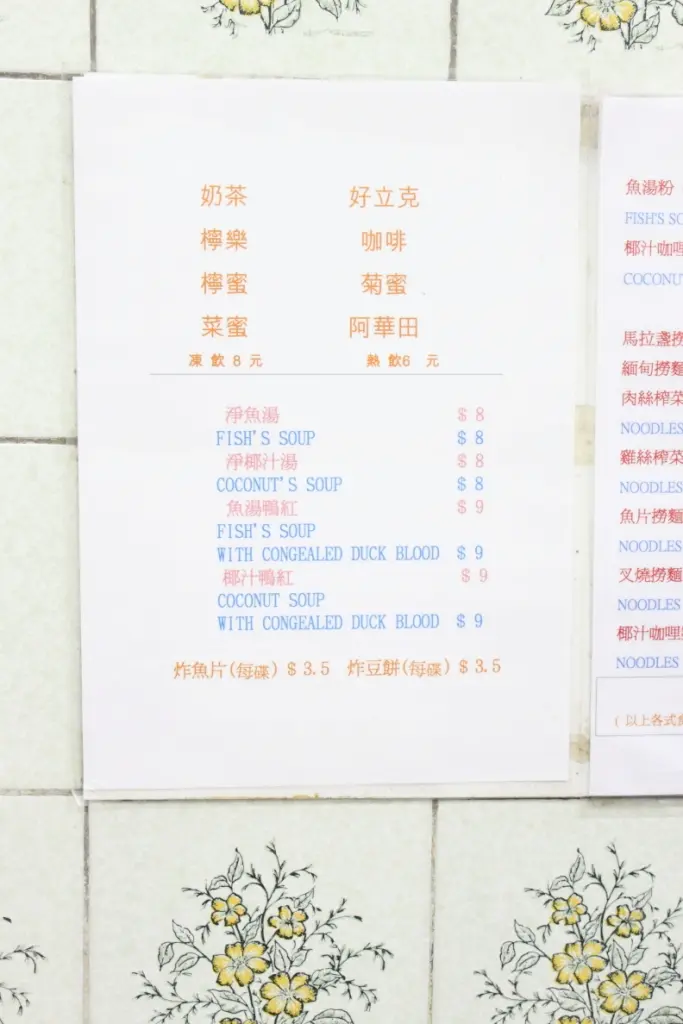 奶茶 好立克
檸樂 咖啡
檸蜜 菊蜜
菜蜜 阿華田
凍 飲 8 元 熱 飲6 元
淨魚湯 $ 8
FISH'S SOUP $ 8
淨椰汁湯 $ 8
COCONUT'S SOUP $ 8
魚湯鴨紅 $ 9
FISH'S SOUP
WITH CONGEALED DUCK BLOOD $ 9
椰汁鴨紅 $ 9
COCONUT SOUP
WITH CONGEALED DUCK BLOOD $ 9
炸魚片(每碟) $ 3.5 炸豆餅(每碟) $ 3.5
魚湯粉
FISH'S
椰汁咖哩
馬拉盞撈
緬甸撈麵
肉絲榨菜
NOODLES
雞絲榨菜
NOODLES
魚片撈麵
NOODLES
叉燒撈麵
NOODLES
椰汁咖哩
NOODLES
( 以上各式